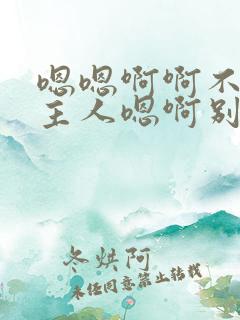 嗯嗯啊啊不
主人嗯啊别
冬烘阿
未经同意禁止转载